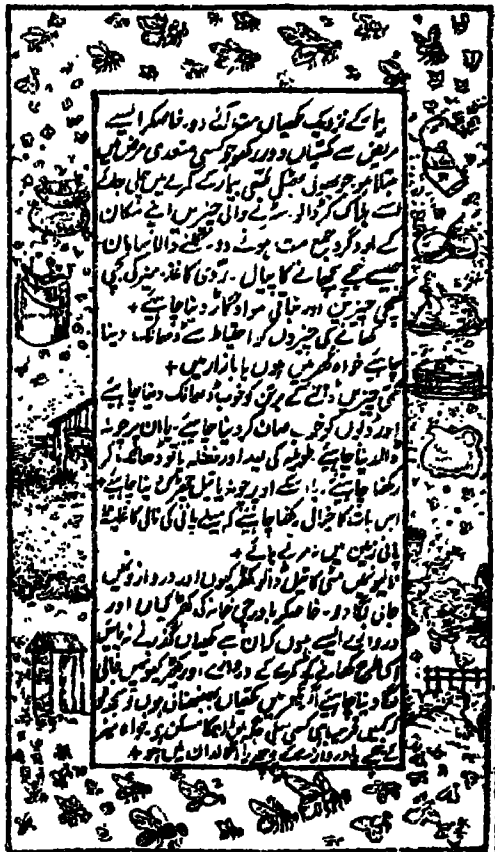 بیمار کے نزدیک مکھیاں مت آنے دو۔ خاصکر ایسے
مریض سے مکھیاں دور رکھو جو کسی متعدی مرض میں
مبتلا ہو جو بھولی بھٹکی مکھی بیمار کے کمرے میں چلی جائے
اسے ہلاک کر ڈالو۔ سڑنے والی چیزیں اپنے مکان
کے ارد گرد جمع مت ہونے دو۔ والا سامان
جیسے نیچے بچھانے کا پیال۔ ردّی کاغذ۔ میز کی بچی
کھچی چیزیں اور نباتی مواد دینا چاہیے +
کھانے کی چیزوں کو احتیاط سے ڈھانک دینا
چاہیے خواہ گھر میں ہوں یا بازار میں +
چیزیں ڈالنے کے برتن کو خوب ڈھانک دینا چاہیے
اور ڈبوں کو خوب صاف کر دینا چاہیے۔ یا ان پر چونہ
ڈالدینا چاہیے طویلہ کی لید اور فضلہ یا تو ڈھانک کر
رکھنا چاہیے۔ اس کے اوپر چونہ یا تیل چھڑک دینا چاہیے +
اس بات کا خیال رکھنا چاہیے کہ میلے پانی کی نالی کا غلیظ
پانی زمین میں نہ مرنے پائے +
نالیوں میں مٹی کا تیل ڈالو کھڑکیوں اور دروازوں میں
جالی لگا دو۔ خاصکر باورچی خانہ کی کھڑکیاں اور
دروازے ایسے ہوں کہ ان سے مکھیاں گذرنے نہ پائیں
اسی طرح کھانے کے کمرے کے دروازے اور کھڑکیوں میں جالی
لگا دینا چاہیے اگر گھر میں مکھیاں بھنبھناتی ہوں تو سمجھو
کہ کہیں قریب ہی کسی میلی جگہ میں ان کا مسکن ہے۔ خواہ میز
کے نیچے یا دروازے کے پیچھے یا اگالدان میں ہو +